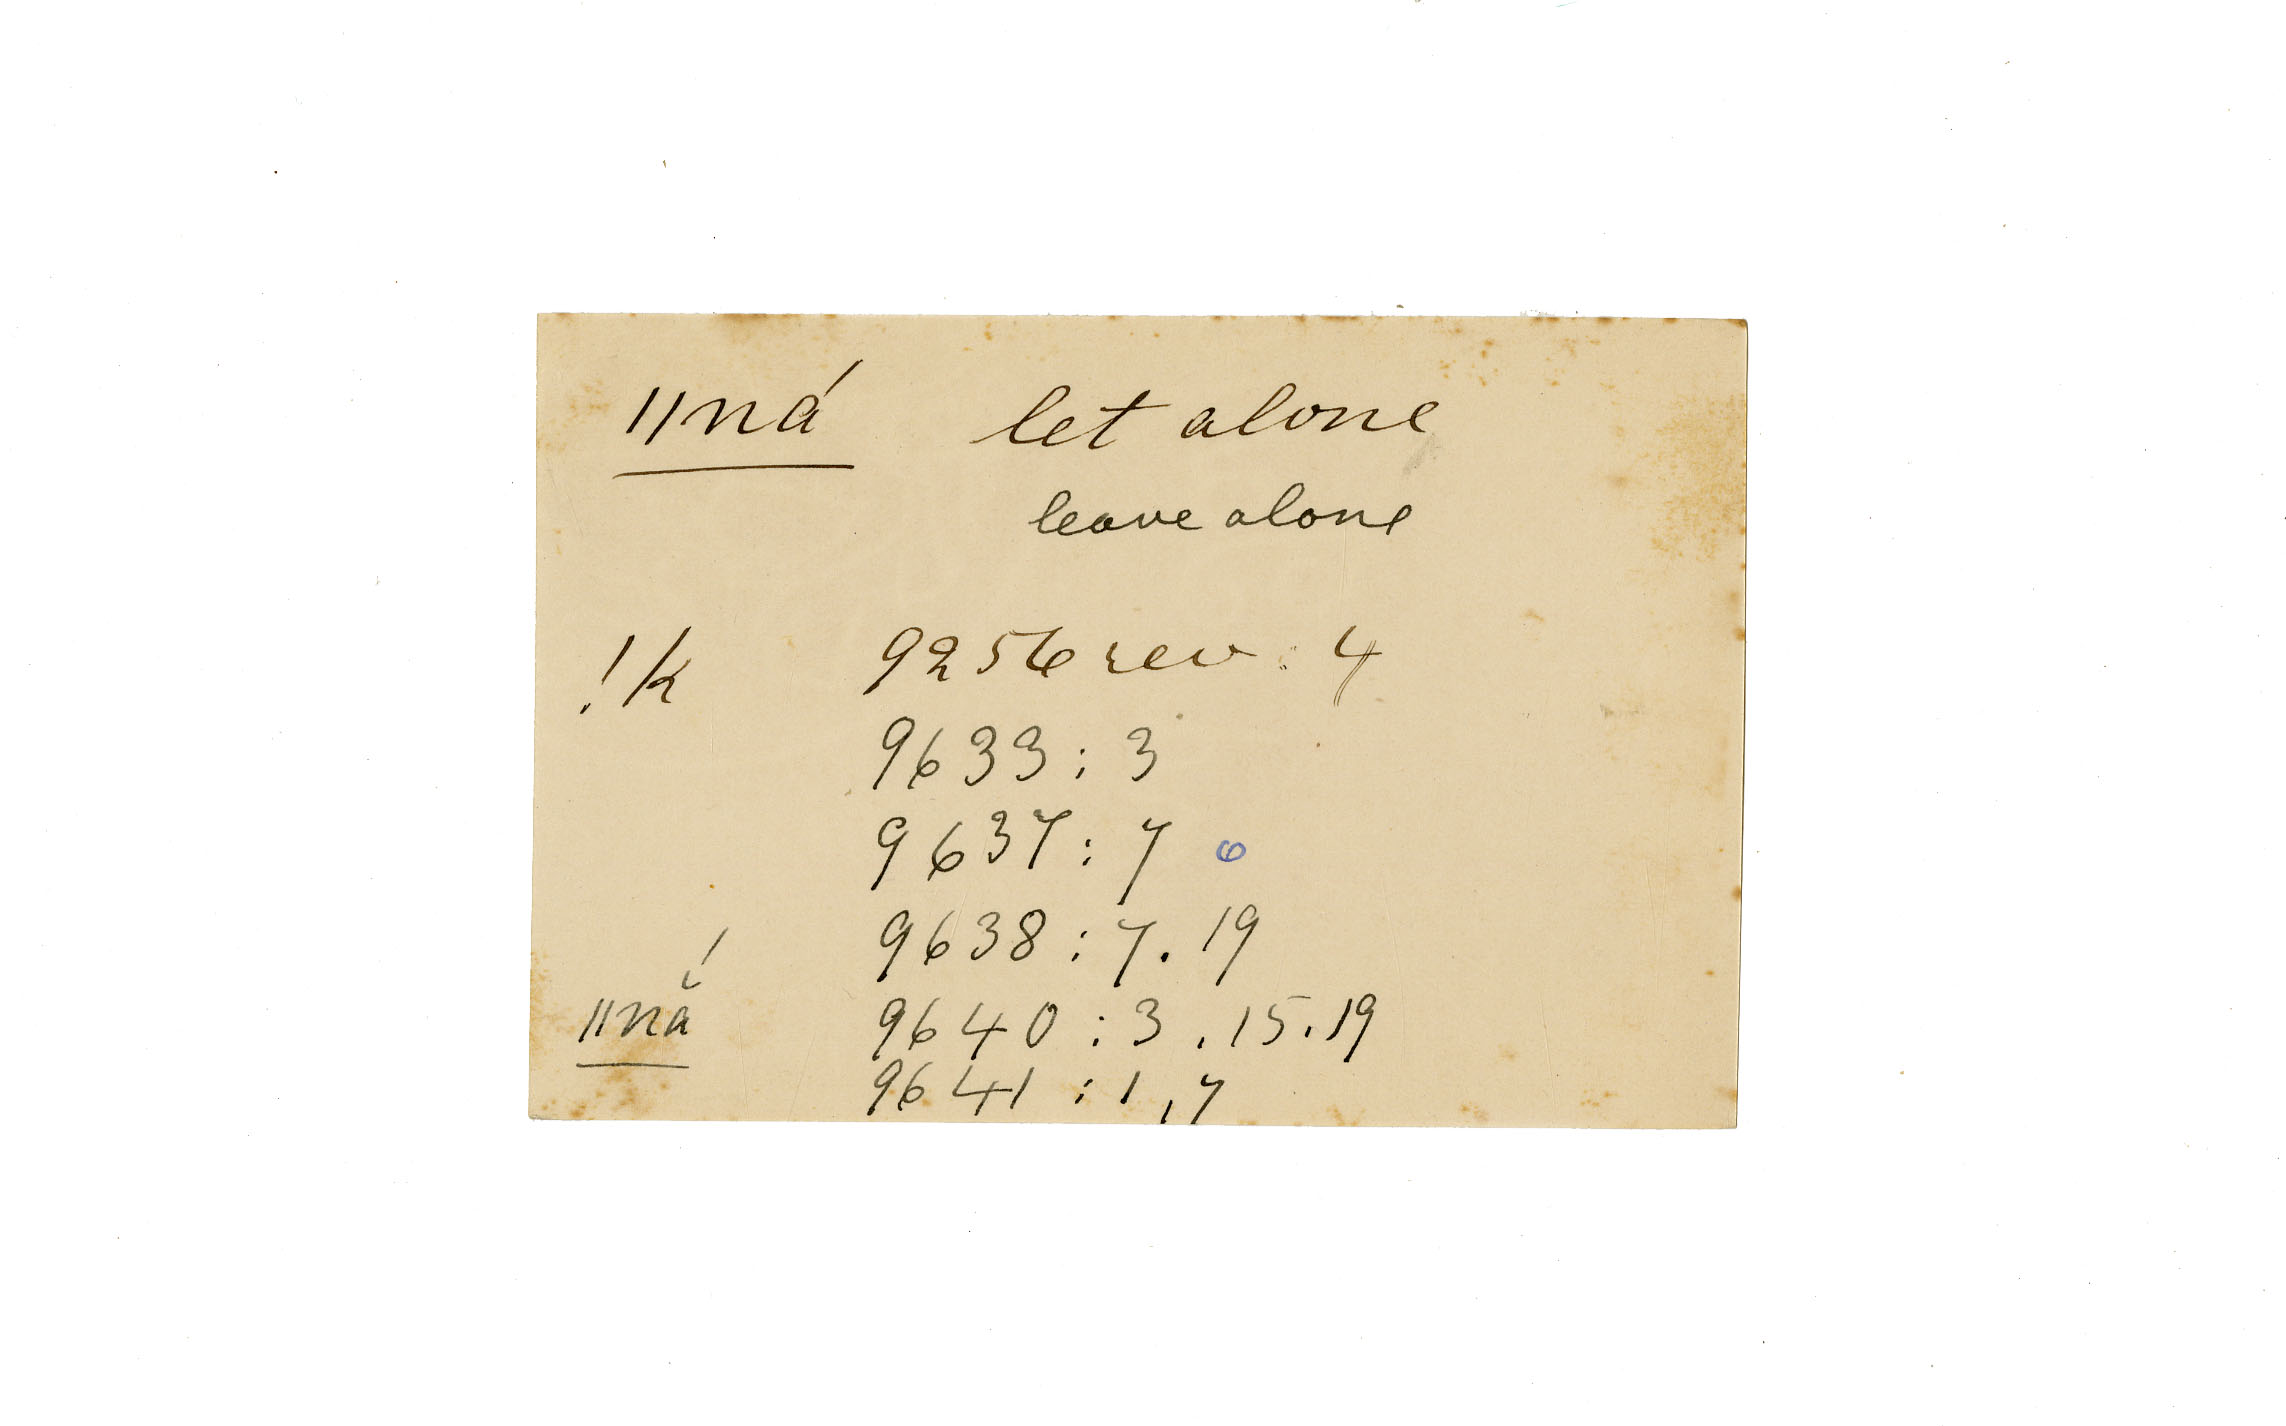 ǁná let alone
leave alone
!k 9256 rev : 4
9633 : 3
9637 : 7 6
9638 : 7. 19
ǁnằ́ 9640 : 3 . 15. 19
9641 : 1, 7